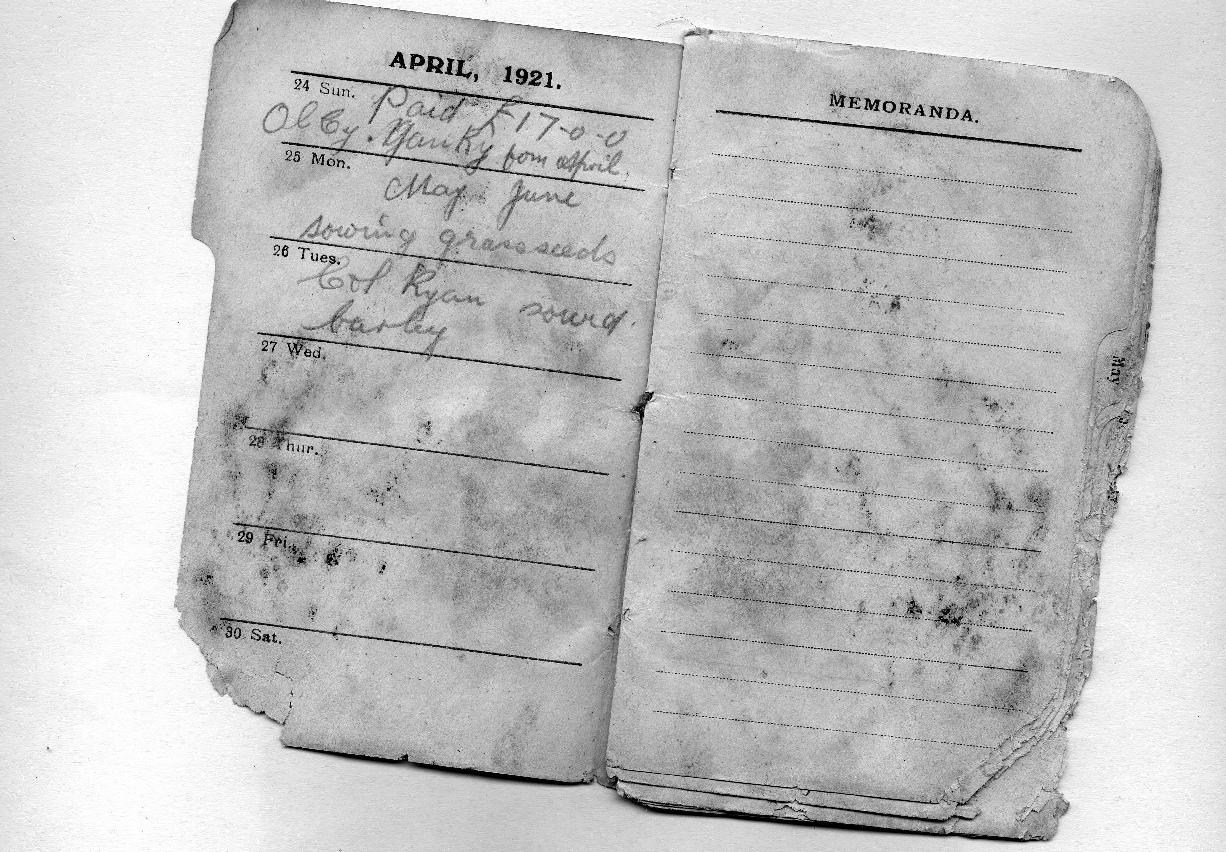 APRIL, 1921.
24 Sun.
Paid £17-0-0
from April
25 Mon.
May June
sowing grass seeds
26 Tues.
Col Ryan sowed
barley
27 Wed.
28 Thur.
29 Fri.
30 Sat.
MEMORANDA.
May